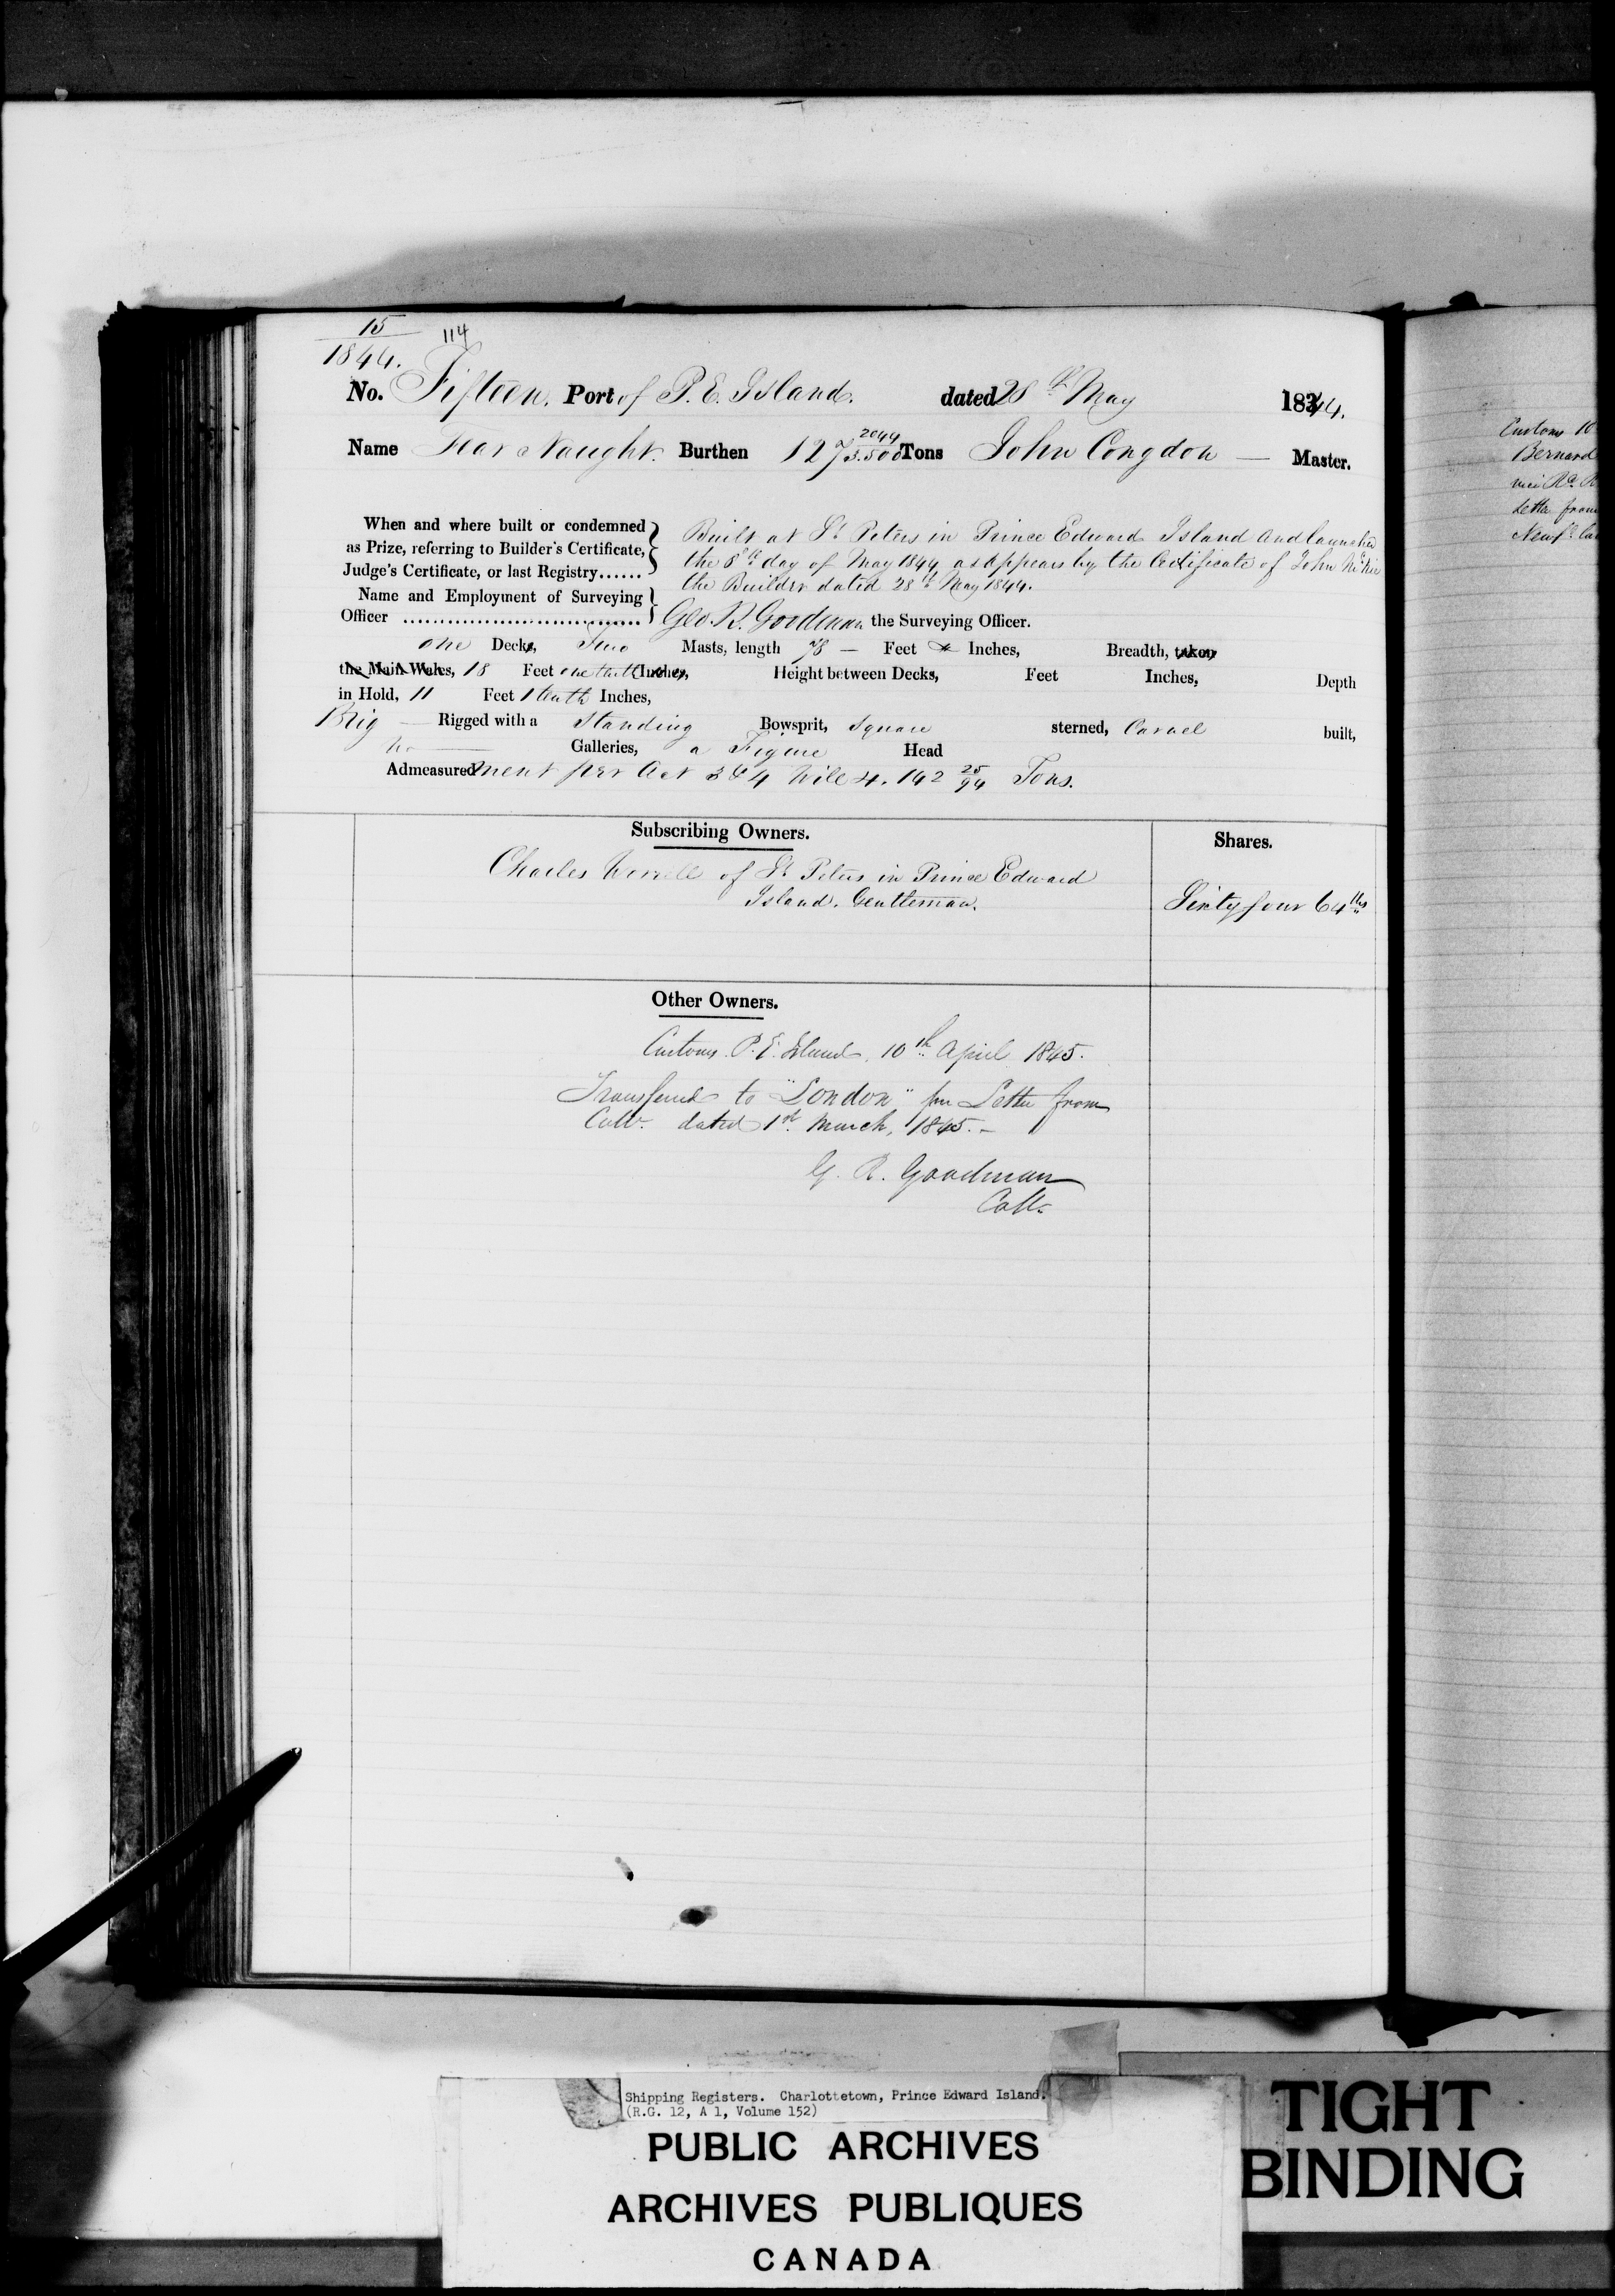 15
1844.
114
No. Fifteen. Port of P. E. Island. dated 28th May 1844.
Name Fear Naught. Burthen 127 2044/3.500 Tons John Congdon — Master.
When and where built or condemned
as Prize, referring to Builder's Certificate,
Judge's Certificate, or last Registry......
Built at St Peters in Prince Edward Island and launched
the 8th day of May 1844 as appears by the Certificate of John
the Builder dated 28th May 1844.
Name and Employment of Surveying
Officer .............................. Geo. R. Goodman the Surveying Officer.
one Decks, Two Masts, length 78 — Feet Inches, Breadth, taken
the Main Wales, 18 Feet one tenth Inches, Height between Decks, Feet Inches, Depth
in Hold, 11 Feet 1 tenth Inches,
Brig — Rigged with a Standing Bowsprit, Square sterned, Carvel built,
no — Galleries, a Figure Head
Admeasurement per Act 3 & 4 Will 4. 142 25/94 Tons.
Subscribing Owners.
Shares.
Charles Worrell of St Peters in Prince Edward
Island. Gentleman.
Sixty four 64ths
Other Owners.
Customs P. E. Island, 10th April 1845.
Transferred to "London" per Letter from
Collr. dated 1st March, 1845. –
G. R. Goodman
Collr.
Customs 10
Bernard
Letter from
Shipping Registers. Charlottetown, Prince Edward Island.
(R.G. 12, A 1, Volume 152)
PUBLIC ARCHIVES
ARCHIVES PUBLIQUES
CANADA
TIGHT
BINDING